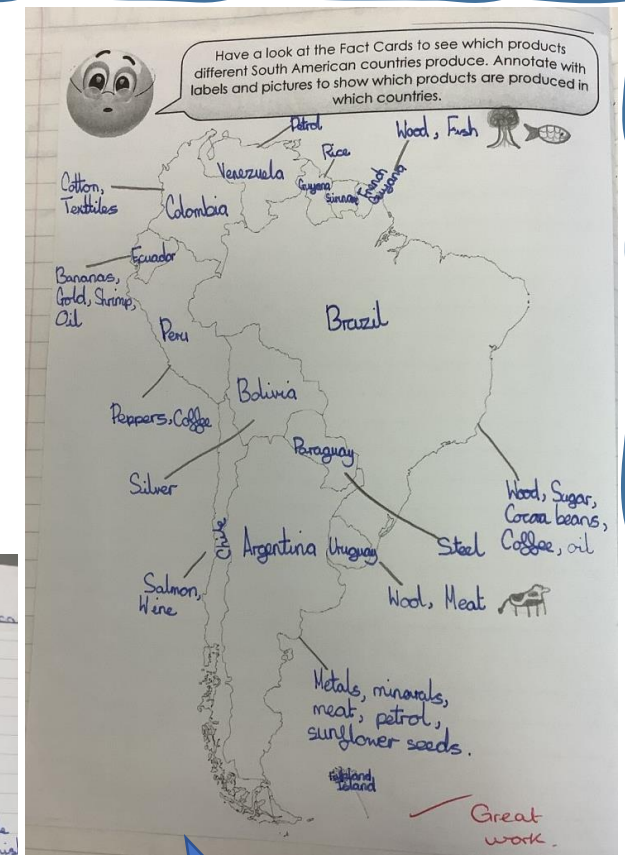 Have a look at the Fact Cards to see which products
different South American countries produce. Annotate with
labels and pictures to show which products are produced in
which countries.
Petrol
Wood, Fish
Rice
Venezuela
Guyana
French
Guyana
Cotton,
Texttiles
Colombia
Ecuador
Bananas,
Gold, Shrimp,
Oil
Brazil
Peru
Bolivia
Peppers, Coffee
Paraguay
Silver
Wood, Sugar,
Cocoa beans,
Coffee, oil
Chile
Argentina
Uruguay
Steel
Salmon,
Wine
Wool, Meat
Metals, minerals,
meat, petrol,
sunflower seeds.
Island
Great
work.